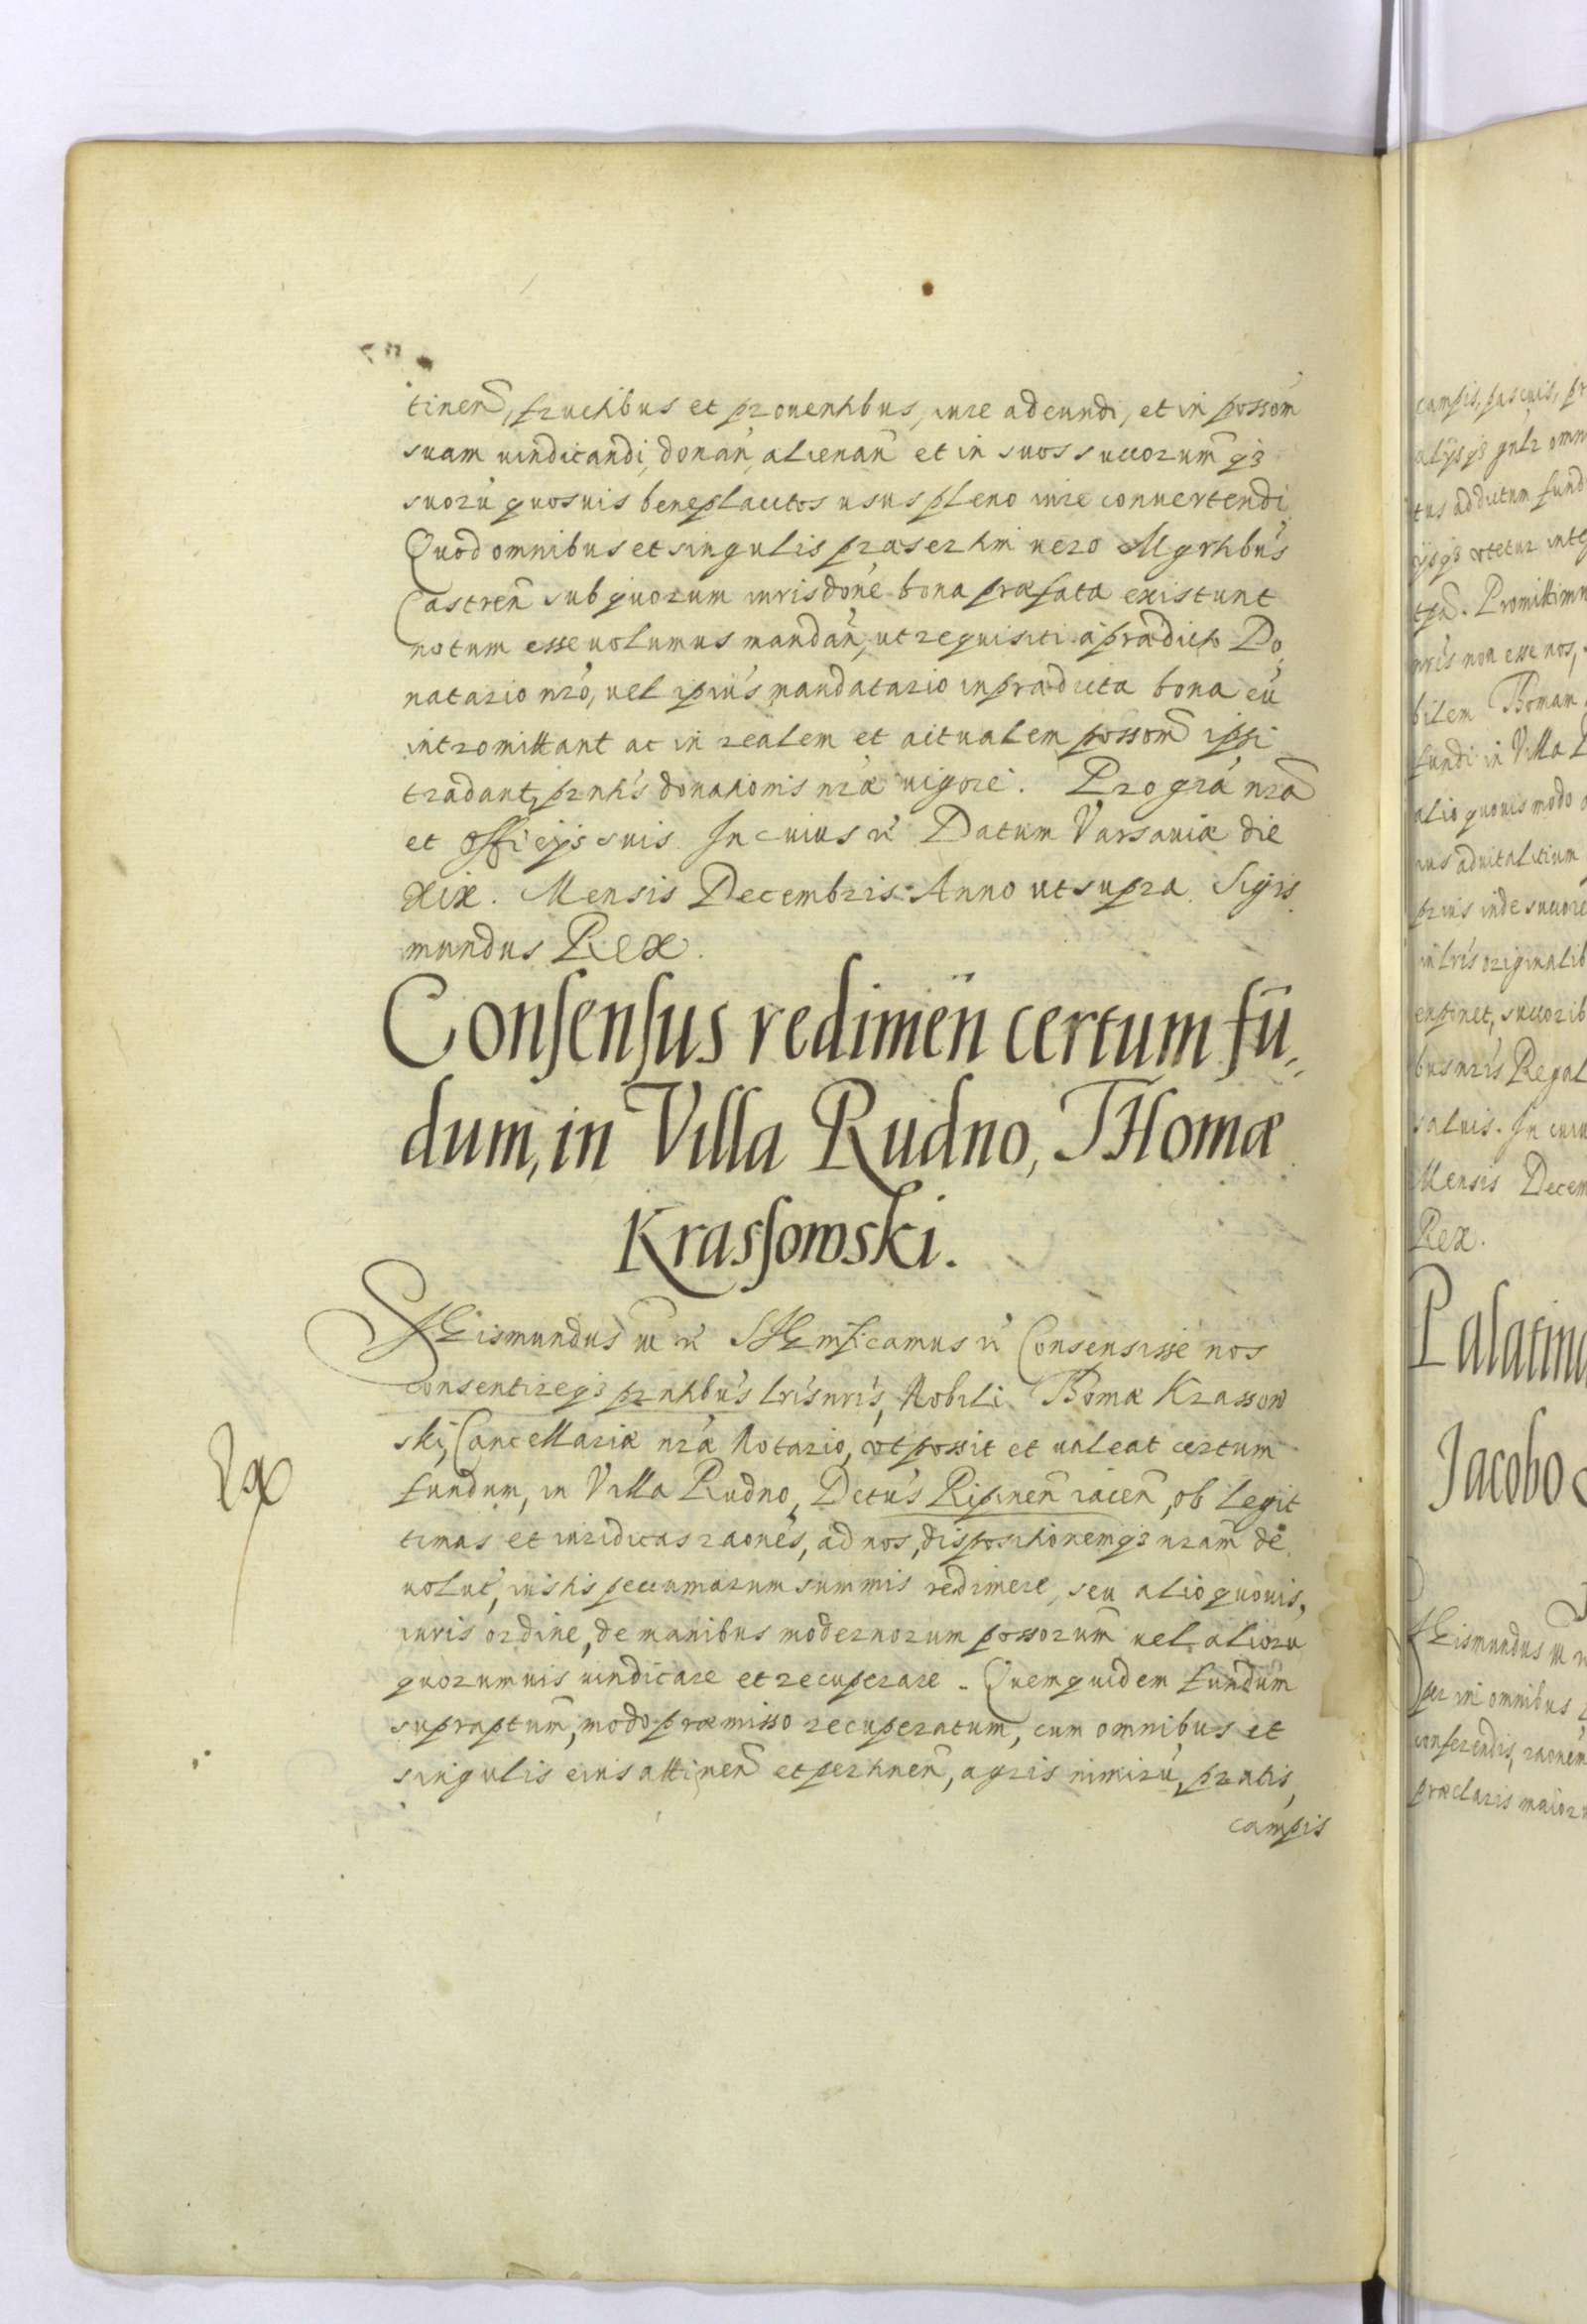 tinen̄, fructibus et prouentibus, iure adeundi, et in possōm
suam uindicandi, donan̄, alienan̄ et in suos succorum̄ qȝ
suorū quosuis beneplacitos usus pleno iure conuertendi
Quod omnibus et singulis præsertim uero Mgrtibus
Castren̄ sub quorum iurisdōne bona præfata existunt
notum esse uolumus mandan̄, ut requisiti à prædicto Do
natario nr̄o, uel ipius mandatario in prædicta bona eū
intromittant ac in realem et actualem possom̄ ipsi
tradant, pr̄ntis donationis nr̄æ uigore. Pro gr̄a nr̄a
et officijs suis. In cuius rč Datum Varsauiæ die
xix. Mensis Decembris Anno ut supra. Sigis
mundus Rex.
Consensus redimen̄ certum fū,,
dum, in Villa Rudno, THomæ
Krassowski.
SIGismundus ūc rč SIGnificamus rč Consensisse nos
consentireqȝ pr̄ntibus lr̄is nr̄is, Nobili Thomæ Krassow
ski, Cancellariæ nr̄æ Notario, ut possit et ualeat certum
fundum, in Villa Rudno, Dctus Ripinen̄ iacen̄, ob legit
timas et iuridicas raōnes, ad nos, dispositionemqȝ nr̄am de
uolut, iustis pecuniarum summis redimere, seu alio quouis,
iuris ordine, de manibus modernorum possorum̄ uel aliorū
quorumuis uindicare et recuperare. Quem quidem fundum
suprapt̄um, modo præmisso recuperatum, cum omnibus et
singulis eius attinen̄ et pertinen̄, agris nimirū, pratis,
campis
campis, pascuis, pr
alijsqȝ gnlr omn
tus ad dictum fund
Promittimu
nris non esse nos,
bilem Thomam
fundi in Villa
alio quouis modo
ius aduitalitium
prius inde succore
in lris originalib
bus nris Regal
saluis. In cuiu
Mensis Decem
Rex.
Palatinu
Jacobo
SIGismundus
per in omnibus
conferendis, raonem
præclaris maior